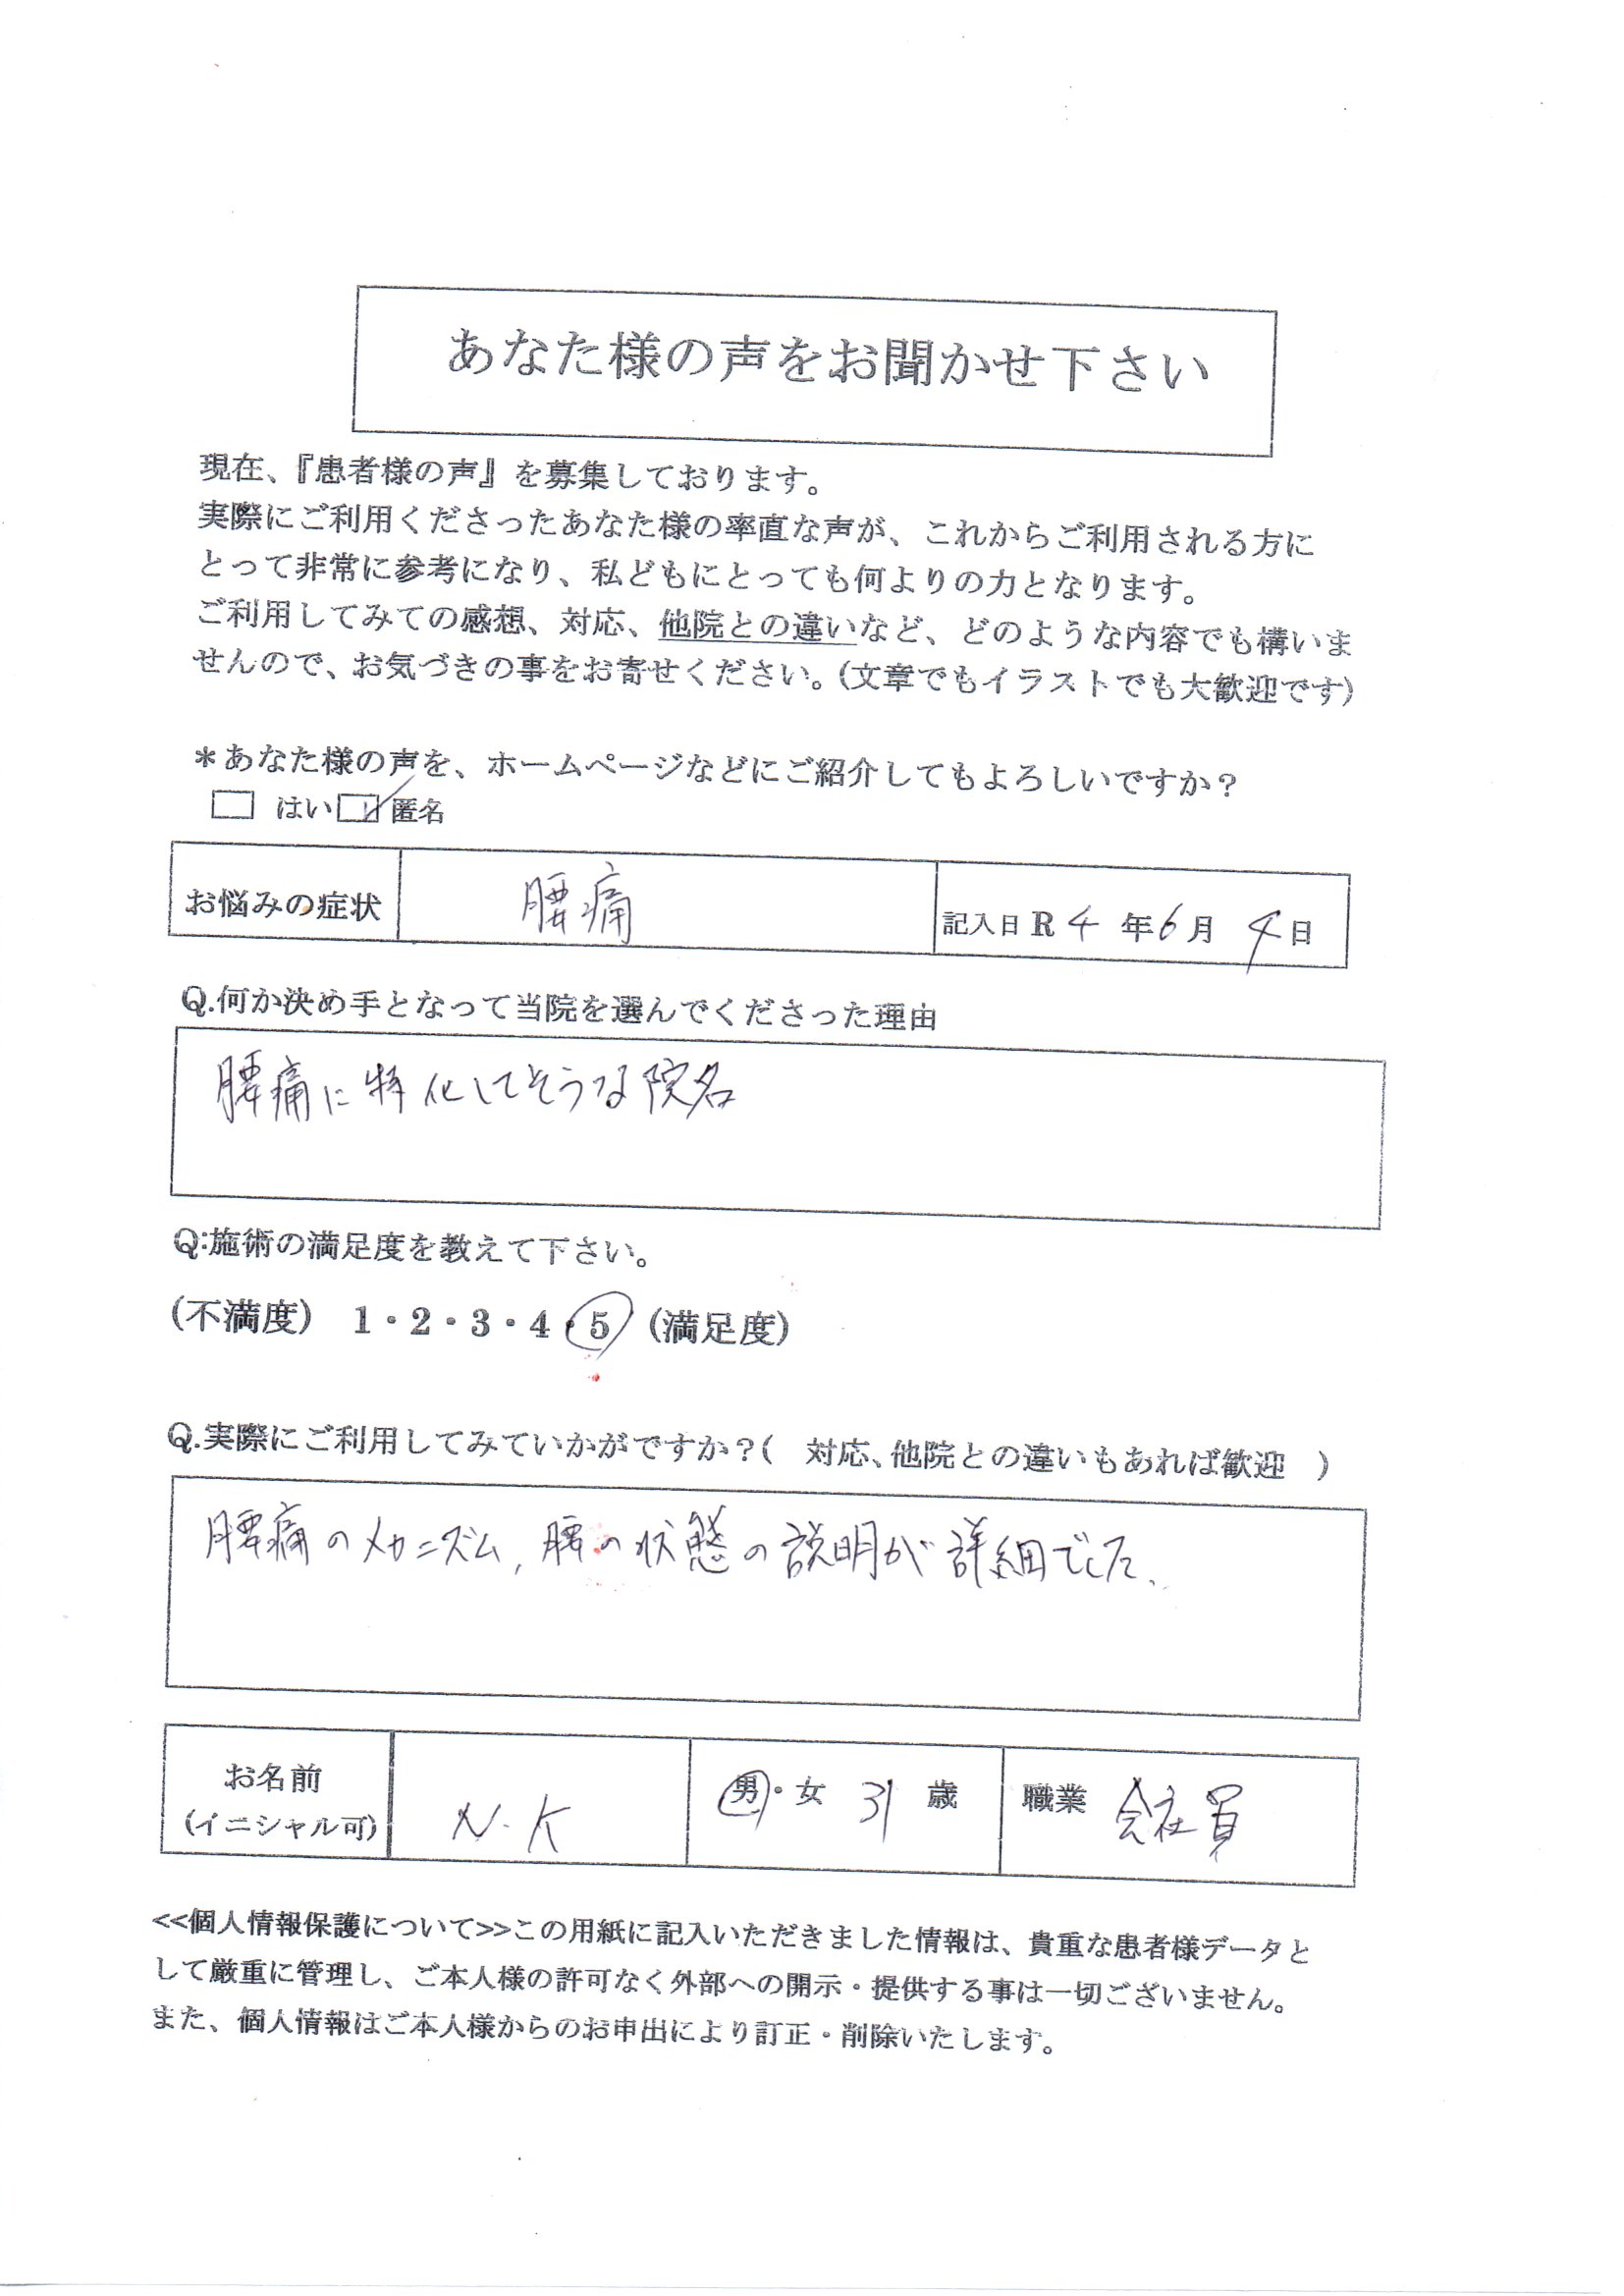 あなた様の声をお聞かせ下さい
現在、『患者様の声』を募集しております。
実際にご利用くださったあなた様の率直な声が、これからご利用される方に
とって非常に参考になり、私どもにとっても何よりの力となります。
ご利用してみての感想、対応、他院との違いなど、どのような内容でも構いま
せんので、お気づきの事をお寄せください。(文章でもイラストでも大歓迎です)
＊あなた様の声を、ホームページなどにご紹介してもよろしいですか？
□ はい ☑ 匿名
お悩みの症状 腰痛 記入日 R 4 年 6 月 4 日
Q.何か決め手となって当院を選んでくださった理由
腰痛に特化してそうな院名
Q:施術の満足度を教えて下さい。
(不満度) 1・2・3・4・5 (満足度)
Q.実際にご利用してみていかがですか？( 対応、他院との違いもあれば歓迎 )
腰痛のメカニズム, 腰の状態の説明が詳細でした.
お名前
(イニシャル可) N.K 男・女 31 歳 職業 会社員
<<個人情報保護について>>この用紙に記入いただきました情報は、貴重な患者様データと
して厳重に管理し、ご本人様の許可なく外部への開示・提供する事は一切ございません。
また、個人情報はご本人様からのお申出により訂正・削除いたします。